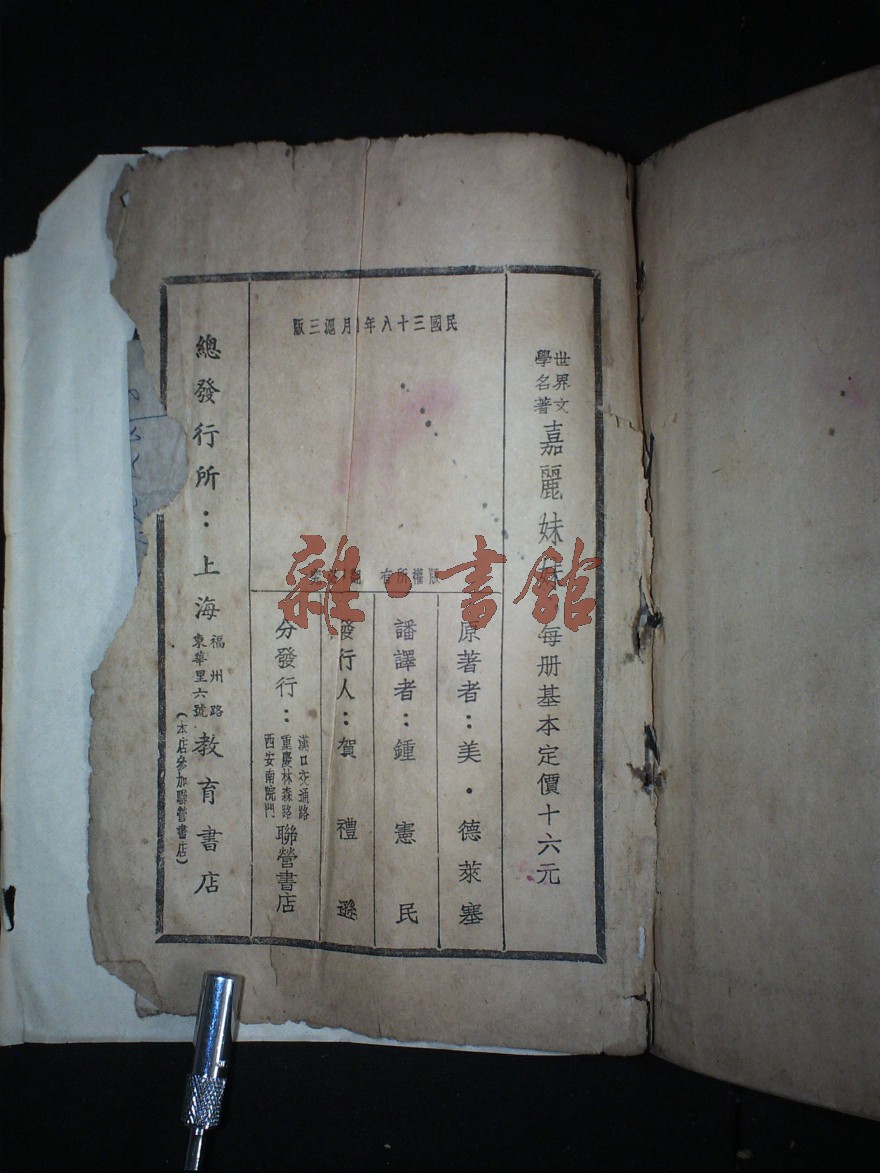 世界文學名著
嘉麗妹妹
每册基本定價十六元
民國三十八年月滬三版
版權所有
原著者：美・德萊塞
譒譯者：鍾憲民
發行人：賀禮遜
分發行：漢口交通路
重慶林森路
西安南院門
聯營書店
總發行所：上海福州路
東華里六號
教育書店
（本店參加聯營書店）
雜・書館